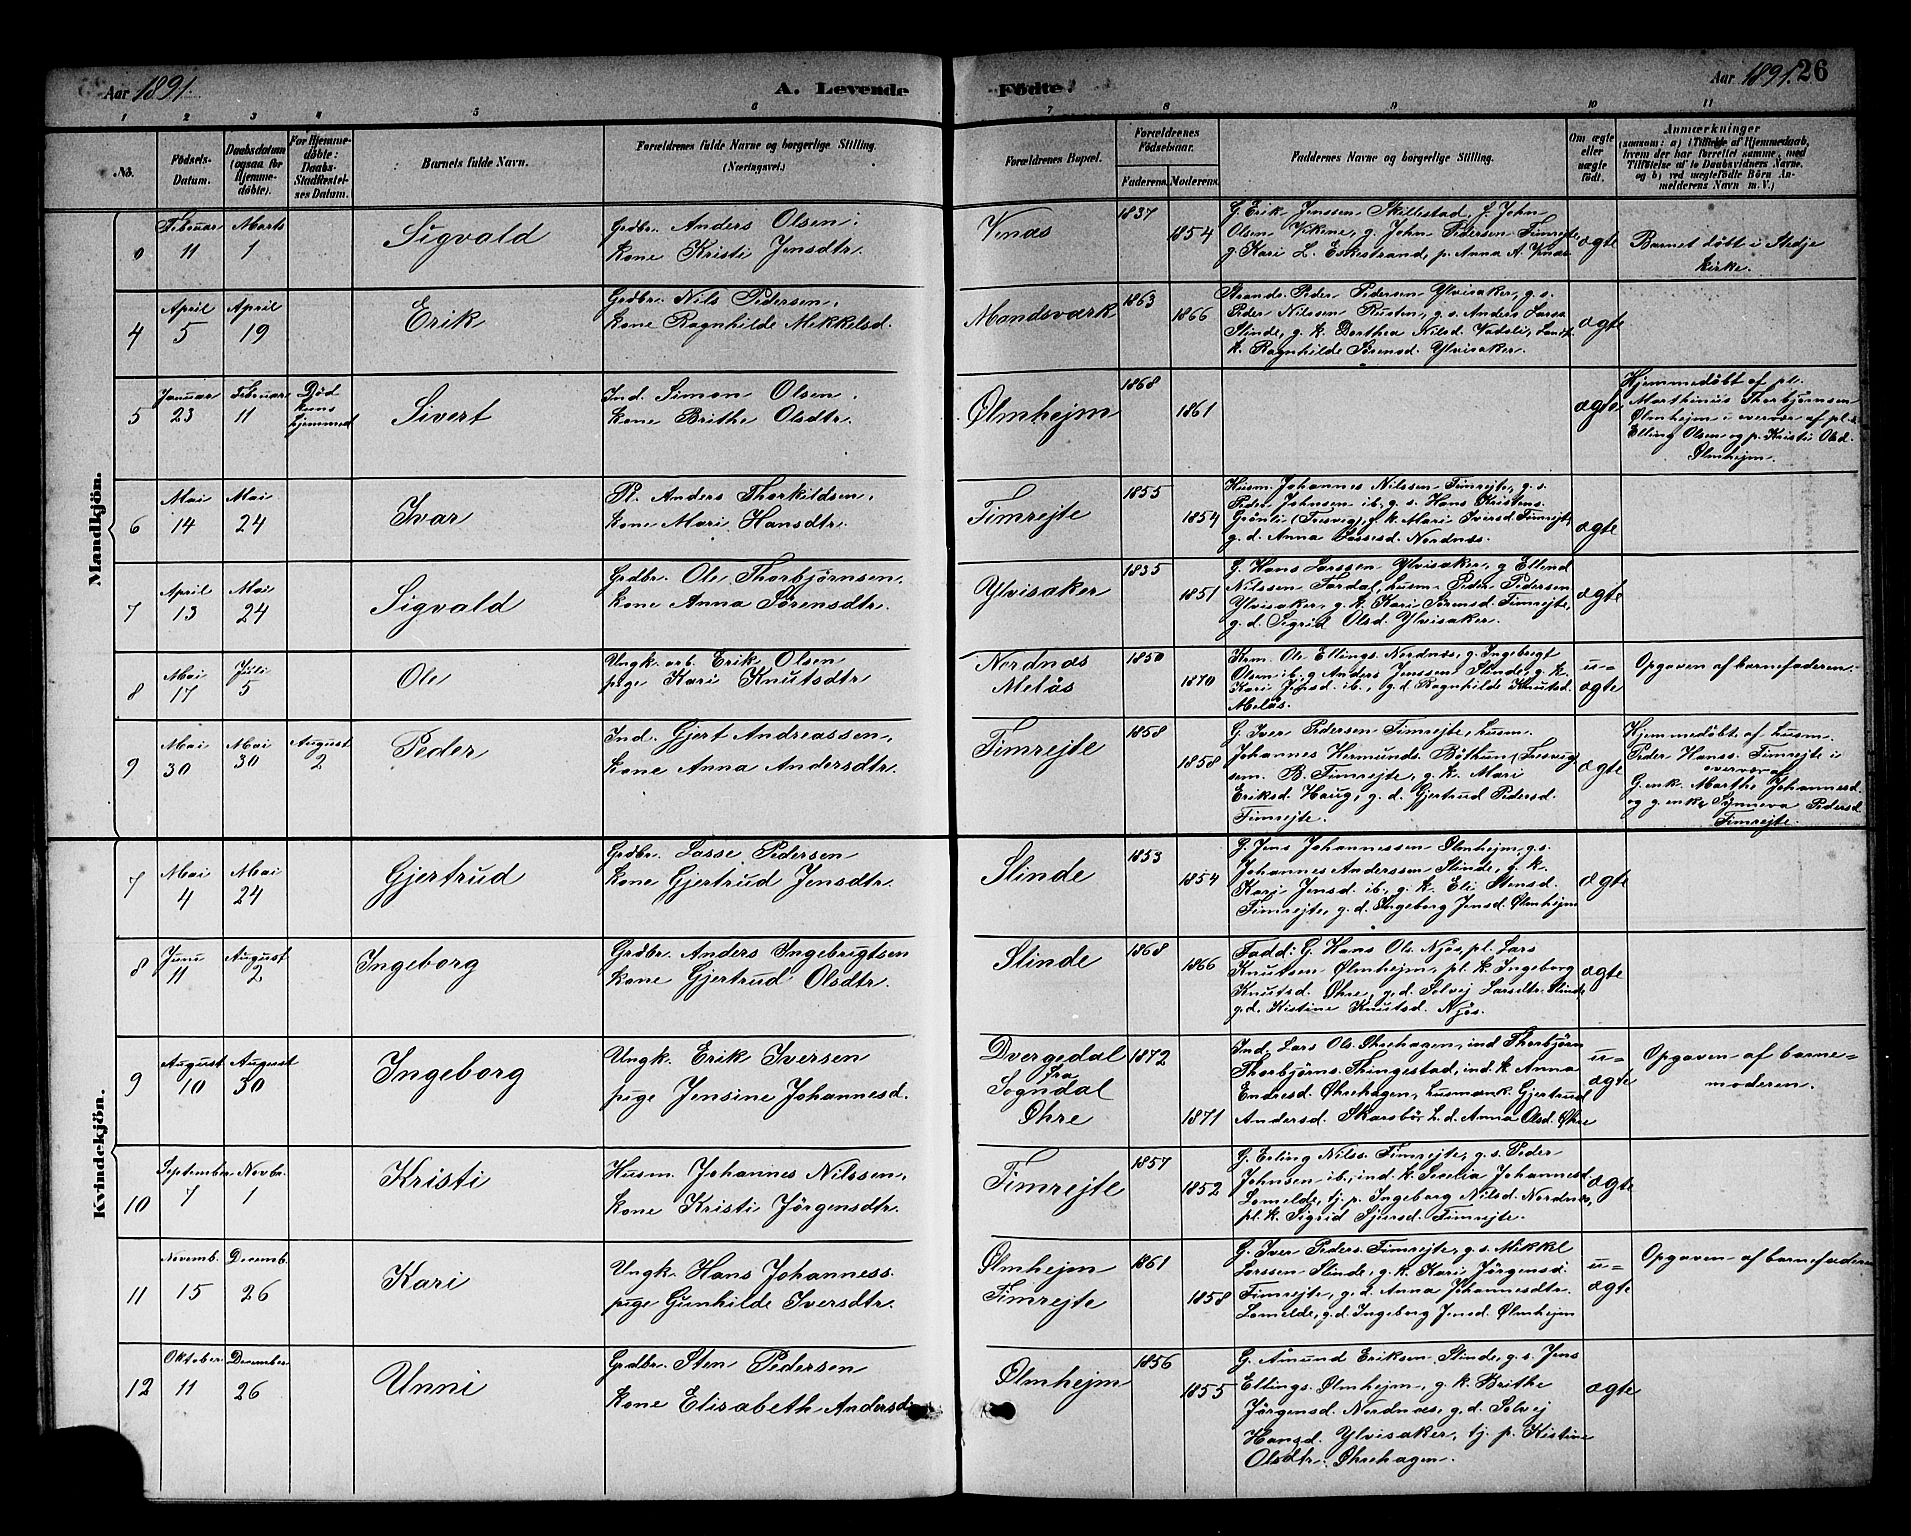 Aar 1891.
A. Levende
Fødte.
Aar 1891. 26
1 2 3 4 5 6 7 8 9 10 11
No.
Fødsels-
Datum.
Daabsdatum
(ogsaa for
Hjemme-
døbte).
For Hjemme-
døbte:
Daabs-
Stadfæstel-
ses Datum.
Barnets fulde Navn.
Forældrenes fulde Navne og borgerlige Stilling.
(Næringsvei.)
Forældrenes Bopæl.
Forældrenes
Fødselsaar.
Faderens. Moderens.
Faddernes Navne og borgerlige Stilling.
Om ægte
eller
uægte
født.
Anmærkninger
(saasom: a) i Tilfælde af Hjemmedaab,
hvem der har forrettet samme, med
Tilføielse af to Daabsvidners Navne,
og b) ved uægtefødte Børn An-
melderens Navn m. V.)
Mandkjön.
Februar 11
Marts 1
Sigvald
Grdbr. Anders Olsen.
Kone Kristi Jensdtr.
Venæs
1837
1854
G. Erik Jenssen Skillestad, g. John
Olsen Vikene, g. John Pedersen Timrejte,
g. Kari L. Eskestrand, p. Anna A. Venæs
ægte
Barnet døbt i Stedje
kirke.
4
April 5
April 19
Erik
Grdbr. Nils Pedersen.
Kone Ragnhilde Mikkelsd.
Mandsværk
1863
1866
Strands. Peder Pedersen Ylvisaker, g. s.
Peder Nilssen Rusten, g. s. Anders Larss.
Slinde, g. k. Borthea Nilsd. Vadsli,
k. Ragnhilde Sørensd. Ylvisaker.
ægte
5
Januar 23
Februar 11
Død
kuns
hjemmed
Sivert
Ind. Simon Olsen.
Kone Brithe Olsdtr.
Ølmhejm
1868
1861
ægte
Hjemmedøbt af pl.
Marthinus Thorbjørnsen
Ølmhejm i overvær af pl. s.
Elling Olsen og p. Kristi Olsd.
Ølmhejm.
6
Mai 14
Mai 24
Ivar
Pl. Anders Thorkildsen.
Kone Mari Hansdtr.
Timrejte
1855
1854
Husm. Johannes Nilsen Timrejte, g. s.
Peder Johnsen ib, g. s. Hans Kristens.
Grønli (Fresvig), g. k. Mari Iversd. Timrejte,
g. d. Anna Lassesd. Nordnæs.
ægte
7
April 13
Mai 24
Sigvald
Grdbr. Ole Thorbjørnsen.
Kone Anna Sørensdtr.
Ylvisaker
1835
1851
G. Hans Larssen Ylvisaker, g. Ellend
Nilssen Fardal, husm. Peder Pedersen
Ylvisaker, g. k. Kari Sørensd. Timrejte,
g. d. Sigrid Olsd. Ylvisaker.
ægte
8
Mai 17
Juli 5
Ole
Ungk. arb. Erik Olsen
pige Kari Knutsdtr
Nordnæs
Meläs
1850
1870
Krm. Ole Ellings. Nordnæs, g. Ingebrigt
Olsen ib, g. Anders Jenssen Slinde, g. k.
Kari Jensd. ib., g. d. Ragnhilde Knutsd.
Meläs.
u-
ægte
Opgaven af barnefaderen.
9
Mai 30
Mai 30
August 2
Peder
Ind. Gjert Andreassen.
Kone Anna Andersdtr.
Timrejte
1858
1858
G. Iver Pedersen Timrejte, husm.
Johannes Hermunds. Bøthun (Fresvig)
sem. B. Timrejte, g. k. Mari
Eriksd. Haug, g. d. Gjertrud Pedersd.
Timrejte.
ægte
Hjemmedøbt af husm.
Peder Hanss. Timrejte i
overvær af
G. enk. Marthe Johannesd.
og g. enk. Synneva Pedersd.
Timrejte.
Kvindekjön.
7
Mai 4
Mai 24
Gjertrud
Grdbr. Lasse Pedersen
Kone Gjertrud Jensdtr.
Slinde
1853
1854
G. Jens Johannessen Ølmhejm, g. s.
Johannes Anderssen Slinde, g. k.
Kari Jensd. ib., g. k. Eli Stensd.
Timrejte, g. d. Ingeborg Jensd. Ølmhejm
ægte
8
Juni 11
August 2
Ingeborg
Grdbr. Anders Ingebrigtsen
Kone Gjertrud Olsdtr.
Slinde
1868
1866
Fadd: G. Hans Ols. Njøs, pl. Lars
Knutsen Ølmhejm, pl. k. Ingeborg
Knutsd. Øhre, g. d. Solvej Larsdtr. Slinde
g. d. Kistine Knutsd. Njøs.
ægte
9
August 10
August 30
Ingeborg
Ungk. Erik Iversen
pige Jensine Johannesd.
Dvergedal
fra
Sogndal
Øhre
1872
1871
Ind. Lars Ols. Øhrehagen, ind. Thorbjörn
Thorbjörns. Thingestad, ind. k. Anna
Endresd. Øhrehagen, husmansk. Gjertrud
Andersd. Skarsbö, L. d. Anna Olsd. Øhre
u-
ægte
Opgaven af barne-
moderen.
10
September 7
Novbr. 1
Kristi
Husm. Johannes Nilssen.
Kone Kristi Jörgensdtr.
Timrejte
1857
1852
G. Erling Nilss. Timrejte, g. s. Peder
Johnsen ib., ind. k. Secelia Johannesd.
Lomelde, tj. p. Ingeborg Nilsd. Nordnæs,
pl. k. Sigrid Sjursd. Timrejte.
ægte
11
Novemb. 15
Decemb. 26
Kari
Ungk. Hans Johanness.
pige Gunhilde Iversdtr.
Ølmhejm
Timrejte
1861
1858
G. Iver Peders. Timrejte, g. s. Mikkel
Larssen Slinde, g. k. Kari Jörgensd.
Timrejte, g. d. Anna Johannesdtr.
Lomelde, g. d. Ingeborg Jensd. Ølmhejm
u-
ægte
Opgaven af barnefaderen
12
Oktober 11
December 26
Unni
Grdbr. Sten Pedersen
Kone Elisabeth Andersd.
Ølmhejm
1856
1855
G. Amund Eriksen Slinde, g. s. Jens
Ellings. Ølmhejm, g. k. Brithe
Jörgensd. Nordnæs, g. d. Solvej
Hansd. Ylvisaker, tj. p. Kistine
Olsdtr. Øhrehagen.
ægte